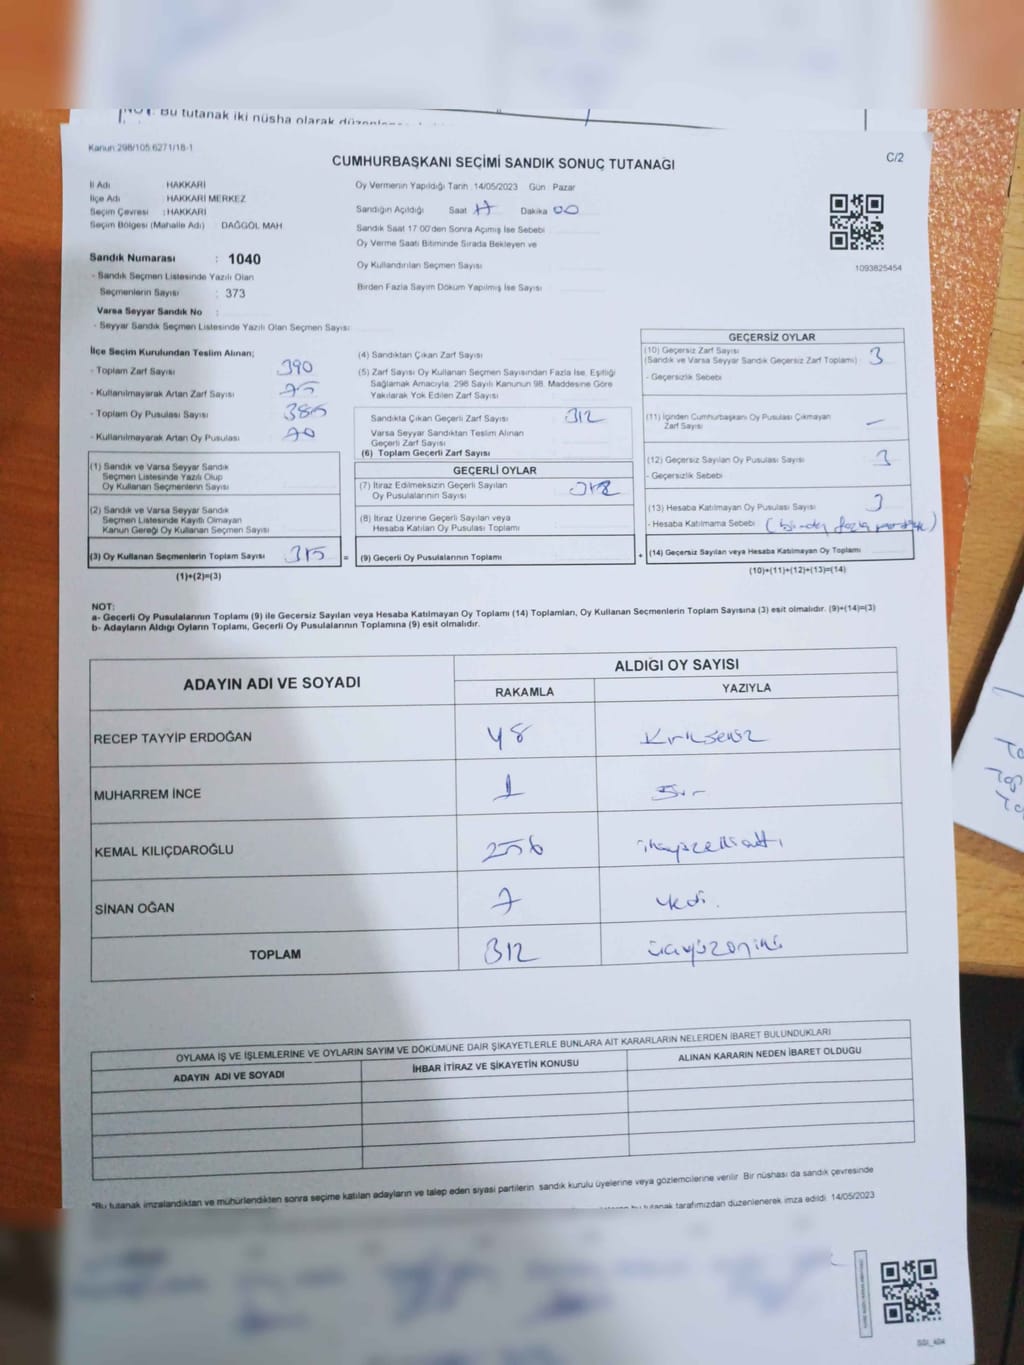 NOT: Bu tutanak iki nüsha olarak
Kanun 298/105 6271/18-1
CUMHURBAŞKANI SEÇİMİ SANDIK SONUÇ TUTANAĞI
C/2
İl Adı HAKKARİ
İlçe Adı : HAKKARİ MERKEZ
Seçim Çevresi : HAKKARİ
Seçim Bölgesi (Mahalle Adı) : DAĞGÖL MAH
Sandık Numarası : 1040
- Sandık Seçmen Listesinde Yazılı Olan
Seçmenlerin Sayısı : 373
Varsa Seyyar Sandık No :
- Seyyar Sandık Seçmen Listesinde Yazılı Olan Seçmen Sayısı:
Oy Vermenin Yapıldığı Tarih :14/05/2023 Gün : Pazar
Sandığın Açıldığı Saat 17 Dakika 00
Sandık Saat 17 00'den Sonra Açımış İse Sebebi
Oy Verme Saati Bitiminde Sırada Bekleyen ve
Oy Kullandırılan Seçmen Sayısı
Birden Fazla Sayım Döküm Yapılmış İse Sayısı
1093825454
İlçe Seçim Kurulundan Teslim Alınan;
- Toplam Zarf Sayısı 390
- Kullanılmayarak Artan Zarf Sayısı 75
- Toplam Oy Pusulası Sayısı 385
- Kullanılmayarak Artan Oy Pusulası 70
(1) Sandık ve Varsa Seyyar Sandık
Seçmen Listesinde Yazılı Olup
Oy Kullanan Seçmenlerin Sayısı
(2) Sandık ve Varsa Seyyar Sandık
Seçmen Listesinde Kayıtlı Olmayan
Kanun Gereği Oy Kullanan Seçmen Sayısı
(3) Oy Kullanan Seçmenlerin Toplam Sayısı 315 =
(1)+(2)=(3)
(4) Sandıktan Çıkan Zarf Sayısı
(5) Zarf Sayısı Oy Kullanan Seçmen Sayısından Fazla İse, Eşitliği
Sağlamak Amacıyla, 298 Sayılı Kanunun 98. Maddesine Göre
Yakılarak Yok Edilen Zarf Sayısı
Sandıkta Çıkan Geçerli Zarf Sayısı 312
Varsa Seyyar Sandıktan Teslim Alınan
Geçerli Zarf Sayısı
(6) Toplam Geçerli Zarf Sayısı
GEÇERLİ OYLAR
(7) İtiraz Edilmeksizin Geçerli Sayılan
Oy Pusulalarının Sayısı 312
(8) İtiraz Üzerine Geçerli Sayılan veya
Hesaba Katılan Oy Pusulası Toplamı
(9) Gecerli Oy Pusulalarının Toplamı +
GEÇERSİZ OYLAR
(10) Geçersiz Zarf Sayısı
(Sandık ve Varsa Seyyar Sandık Geçersiz Zarf Toplamı) : 3
- Geçersizlik Sebebi
(11) İçinden Cumhurbaşkanı Oy Pusulası Çıkmayan
Zarf Sayısı —
(12) Geçersiz Sayılan Oy Pusulası Sayısı 3
- Geçersizlik Sebebi
(13) Hesaba Katılmayan Oy Pusulası Sayısı 3
- Hesaba Katılmama Sebebi (birden fazla
(14) Geçersiz Sayılan veya Hesaba Katılmayan Oy Toplamı
(10)+(11)+(12)+(13)=(14)
NOT:
a- Gecerli Oy Pusulalarının Toplamı (9) ile Gecersiz Sayılan veya Hesaba Katılmayan Oy Toplamı (14) Toplamları, Oy Kullanan Secmenlerin Toplam Sayısına (3) esit olmalıdır. (9)+(14)=(3)
b- Adayların Aldığı Oyların Toplamı, Geçerli Oy Pusulalarının Toplamına (9) esit olmalıdır.
ADAYIN ADI VE SOYADI
ALDIĞI OY SAYISI
RAKAMLA YAZIYLA
RECEP TAYYİP ERDOĞAN 48 Kırksekiz
MUHARREM İNCE 1 Bir
KEMAL KILIÇDAROĞLU 256 ikiyüzellialtı
SİNAN OĞAN 7 yedi.
TOPLAM 312 üçyüzoniki
OYLAMA İŞ VE İŞLEMLERİNE VE OYLARIN SAYIM VE DÖKÜMÜNE DAİR ŞİKAYETLERLE BUNLARA AİT KARARLARIN NELERDEN İBARET BULUNDUKLARI
ADAYIN ADI VE SOYADI İHBAR İTİRAZ VE ŞİKAYETİN KONUSU ALINAN KARARIN NEDEN İBARET OLDUGU
*Bu tutanak imzalandıktan ve mühürlendikten sonra seçime katılan adayların ve talep eden siyasi partilerin sandık kurulu üyelerine veya gözlemcilerine verilir. Bir nüshası da sandık çevresinde
bu tutanak tarafımızdan düzenlenerek imza edildi. 14/05/2023